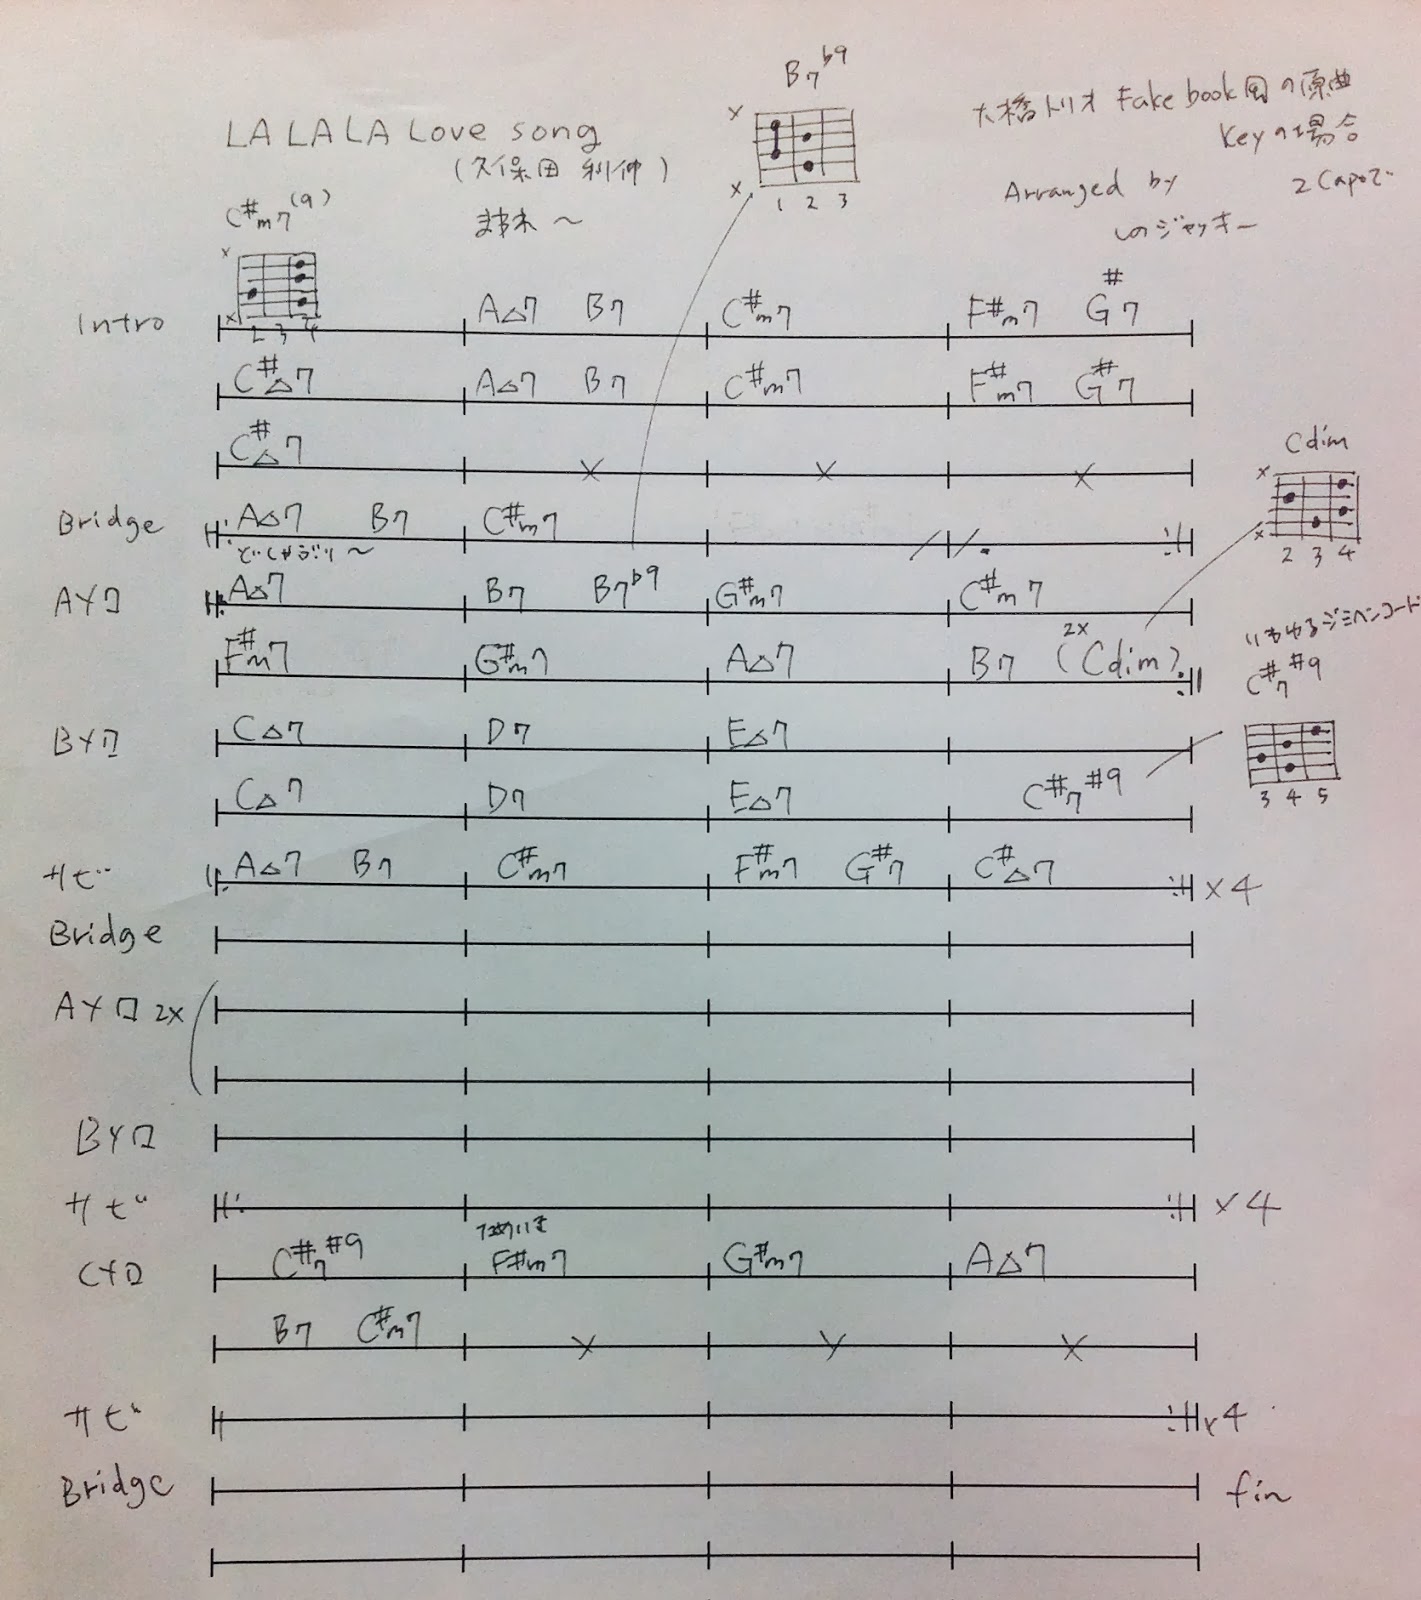 B7♭9
大橋トリオ Fake book風の原曲
LA LA LA Love song
Keyの場合
(久保田 利伸)
Arranged by
2 Capoで
C#m7(9)
まわれ〜
しのジャッキー
1 2 3
2 3 4
Intro A△7 B7 C#m7 F#m7 G#7
C#△7 A△7 B7 C#m7 F#m7 G#7
C#△7
Cdim
Bridge A△7 B7 C#m7
どしゃぶり〜
2 3 4
Aメロ A△7 B7 B7♭9 G#m7 C#m7
いわゆるジミヘンコード
F#m7 G#m7 A△7 B7 2x (Cdim)
C#7#9
Bメロ C△7 D7 E△7
C△7 D7 E△7 C#7#9
3 4 5
サビ A△7 B7 C#m7 F#m7 G#7 C#△7 x4
Bridge
Aメロ 2x
Bメロ
サビ x4
Cメロ C#7#9 F#m7 G#m7 A△7
B7 C#m7
サビ x4
Bridge fin